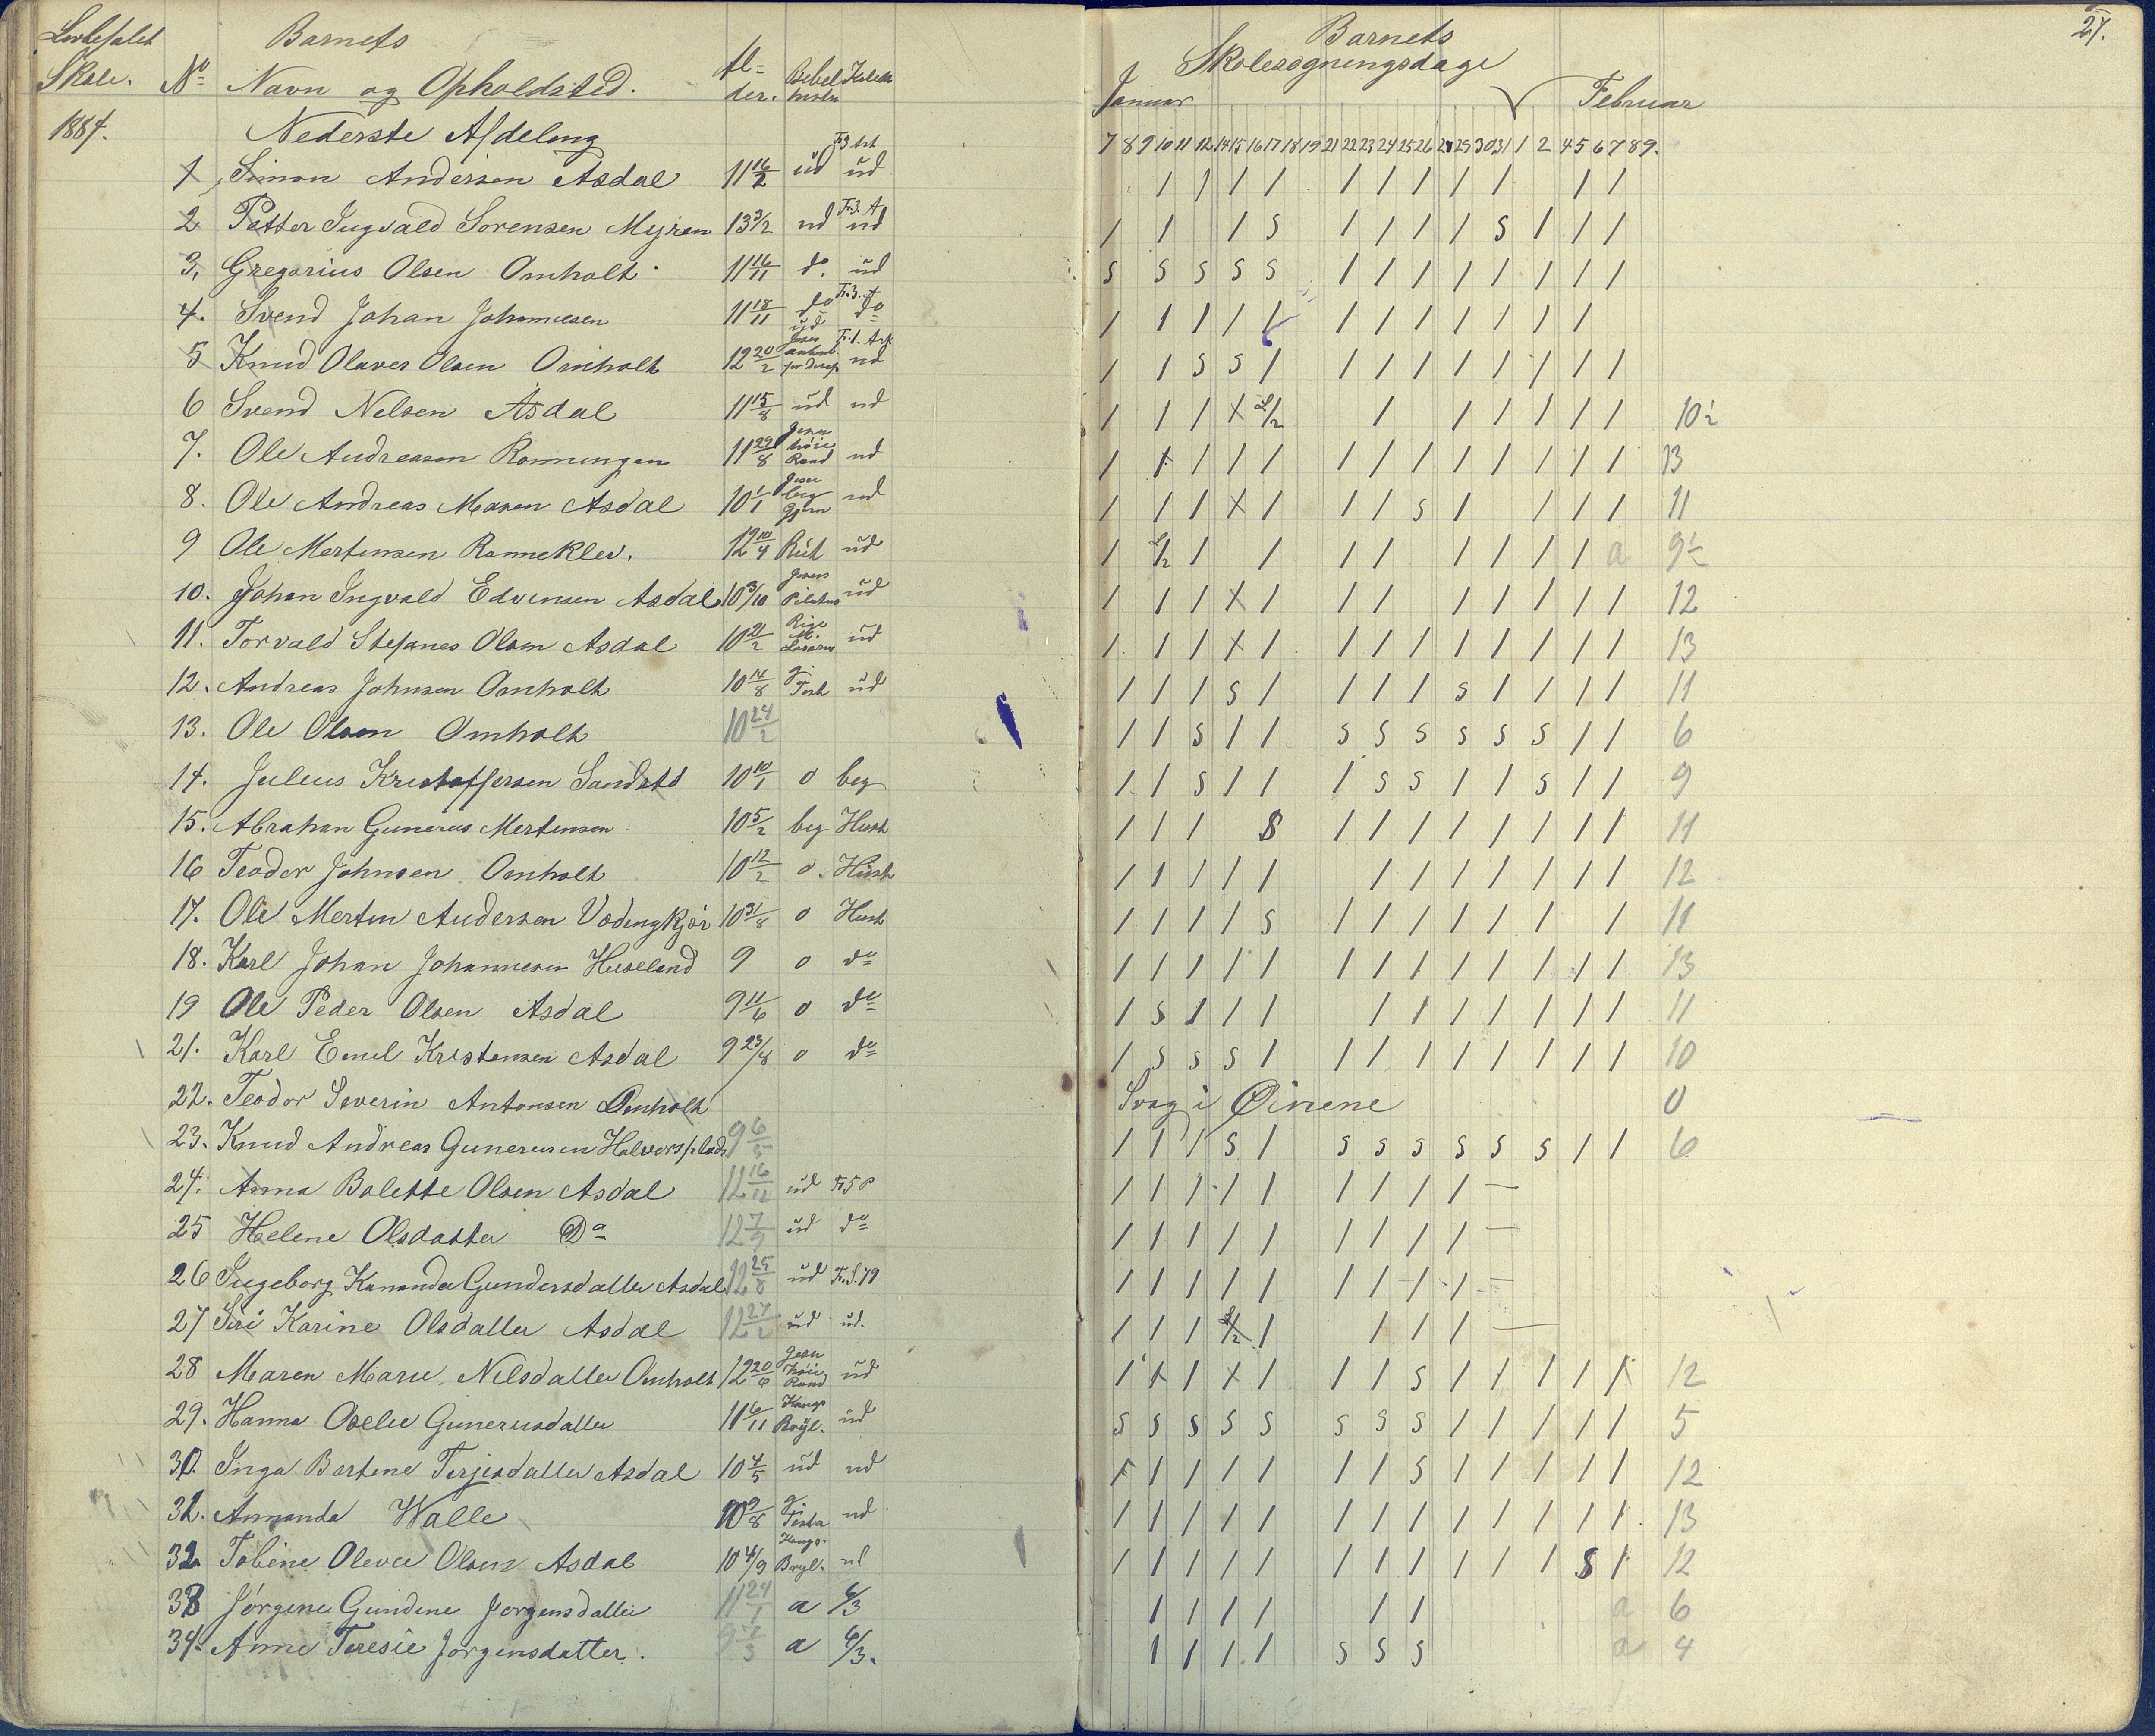 Barnets
Skole. No Navn og Opholdsted. Al=der. Bibel Kateki
1884. Nederste Afdeling
1 Simon Andersen Asdal 11 16/2 ud ud
2 Petter Ingvald Sorensen Myren 13 3/2 ud ud
3. Gregorius Olsen Omholt 11 16/11 do. ud
4. Svend Johan Johannesen 11 18/11 do do
5 Knud Olaves Olsen Omholt 12 20/2 ud
6 Svend Nelsen Asdal 11 15/8 ud ud
7. Ole Andreasen Ronningen 11 29/8 ud
8. Ole Andreas Masen Asdal 10 1/1 ud
9 Ole Mertensen Ranneklev. 12 10/4 Rut ud
10. Johan Ingvald Edvensen Asdal 10 3/10 Jesus Pilatus ud
11. Torvald Stefanes Olsen Asdal 10 21/2 Rige M. Lasarus ud
12. Andreas Johnsen Omholt 10 14/8 ud
13. Ole Olsen Omholt 10 24/2
14. Julius Kristoffersen Sandstö 10 10/1 o beg
15. Abrahan Gunerus Mertensen 10 5/2 beg Hust
16 Teodor Johnsen Omholt 10 12/2 o. Hust
17. Ole Merten Andersen Vedingkjær 10 31/8 o Hust
18. Karl Johan Johannesen Heseland 9 o do
19 Ole Peder Olsen Asdal 9 11/6 o do
21. Karl Emil Kristensen Asdal 9 23/8 o do
22. Teodor Severin Antonsen Omholt
23. Knud Andreas Gunerusen Halvorsplads 9 6/5
24. Anna Bolette Olsen Asdal 11 16/12 ud
25 Helene Olsdatter Do 12 7/9 ud do
26 Ingeborg Kananda Gundersdatter Asdal ud
27 Siri Karine Olsdatter Asdal 12 27/2 ud ud.
28 Maren Marie Nilsdatter Omholt 12 20/6 ud
29. Hanna Oselie Gunerusdatter 11 6/11 ud
30. Inga Bertine Terjesdatter Asdal 10 4/5 ud ud
31. Amanda Walle 10 9/8 ud
32 Tobine Olevie Olsen Asdal 10 4/9 ud
33 Jørgine Gundine Jorgensdatter 11 24/1 a 6/3
34. Anne Teresie Jorgensdatter. a 6/3.
27.
Barnets
Skolesøgningsdage
Januar Februar
7 8 9 10 11 12 14 15 16 17 18 19 21 22 23 24 25 26 28 29 30 31 1 2 4 5 6 7 8 9.
/ / / / / / / / / / / /
/ / / S / / / / S / / /
S S S S S / / / / / / / /
/ / / / / / / / / / / /
/ / S S / / / / / / / / /
/ / / X 1/2 / / / / / / 10 1/2
/ / / / / / / / / / / / / 13
/ / / X / / / S / / / / 11
/ 1/2 / / / / / / / / a 9 1/2
/ / / X / / / / / / / / 12
/ / / X / / / / / / / / / 13
/ / / S / / / / S / / / / 11
/ / S / / S S S S S S / / 6
/ / S / / / S S / / S / / 9
/ / / S / / / / / / / / 11
/ / / / / / / / / / / / 12
/ / / / S / / / / / / / 11
/ / / / / / / / / / / / / 13
/ S / / / / / / / / / / 11
/ S S S / / / / / / / / / 10
Svag i Øinene 0
/ / / S / S S S S S S / / 6
/ / / / / / / / / —
/ / / / / / / / / —
/ / / / / / / / / —
/ / / 1/2 / / / / —
/ / / X / / / S / / / / / 12
S S S S S S S S / / / / / 5
/ / / / / / / S / / / / / 12
/ / / / / / / / / / / / / 13
/ / / / / / / / / / / S / 12
/ / / / / / a 6
/ / / / S S S a 4